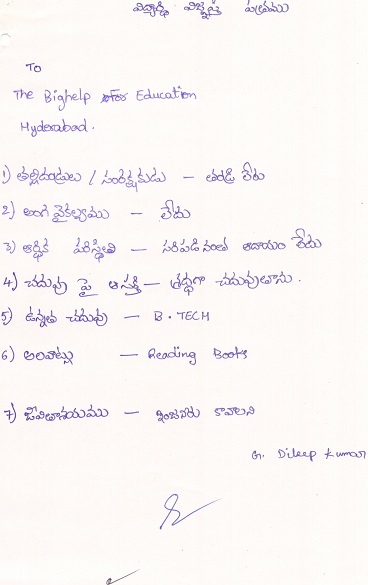 విద్యార్థి విజ్ఞప్తి పత్రము
To
The Bighelp For Education
Hyderabad.
1) తల్లిదండ్రులు / సంరక్షకుడు - తండ్రి లేరు
2) అంగ వైకల్యము - లేదు
3) ఆర్థిక పరిస్థితి - సరిపడినంత ఆదాయం లేదు
4) చదువు పై ఆసక్తి - శ్రద్ధగా చదువుతాను.
5) ఉన్నత చదువు - B.TECH
6) అలవాట్లు - Reading Books
7) జీవితాశయము - ఇంజనీరు కావాలని
G. Dileep Kumar